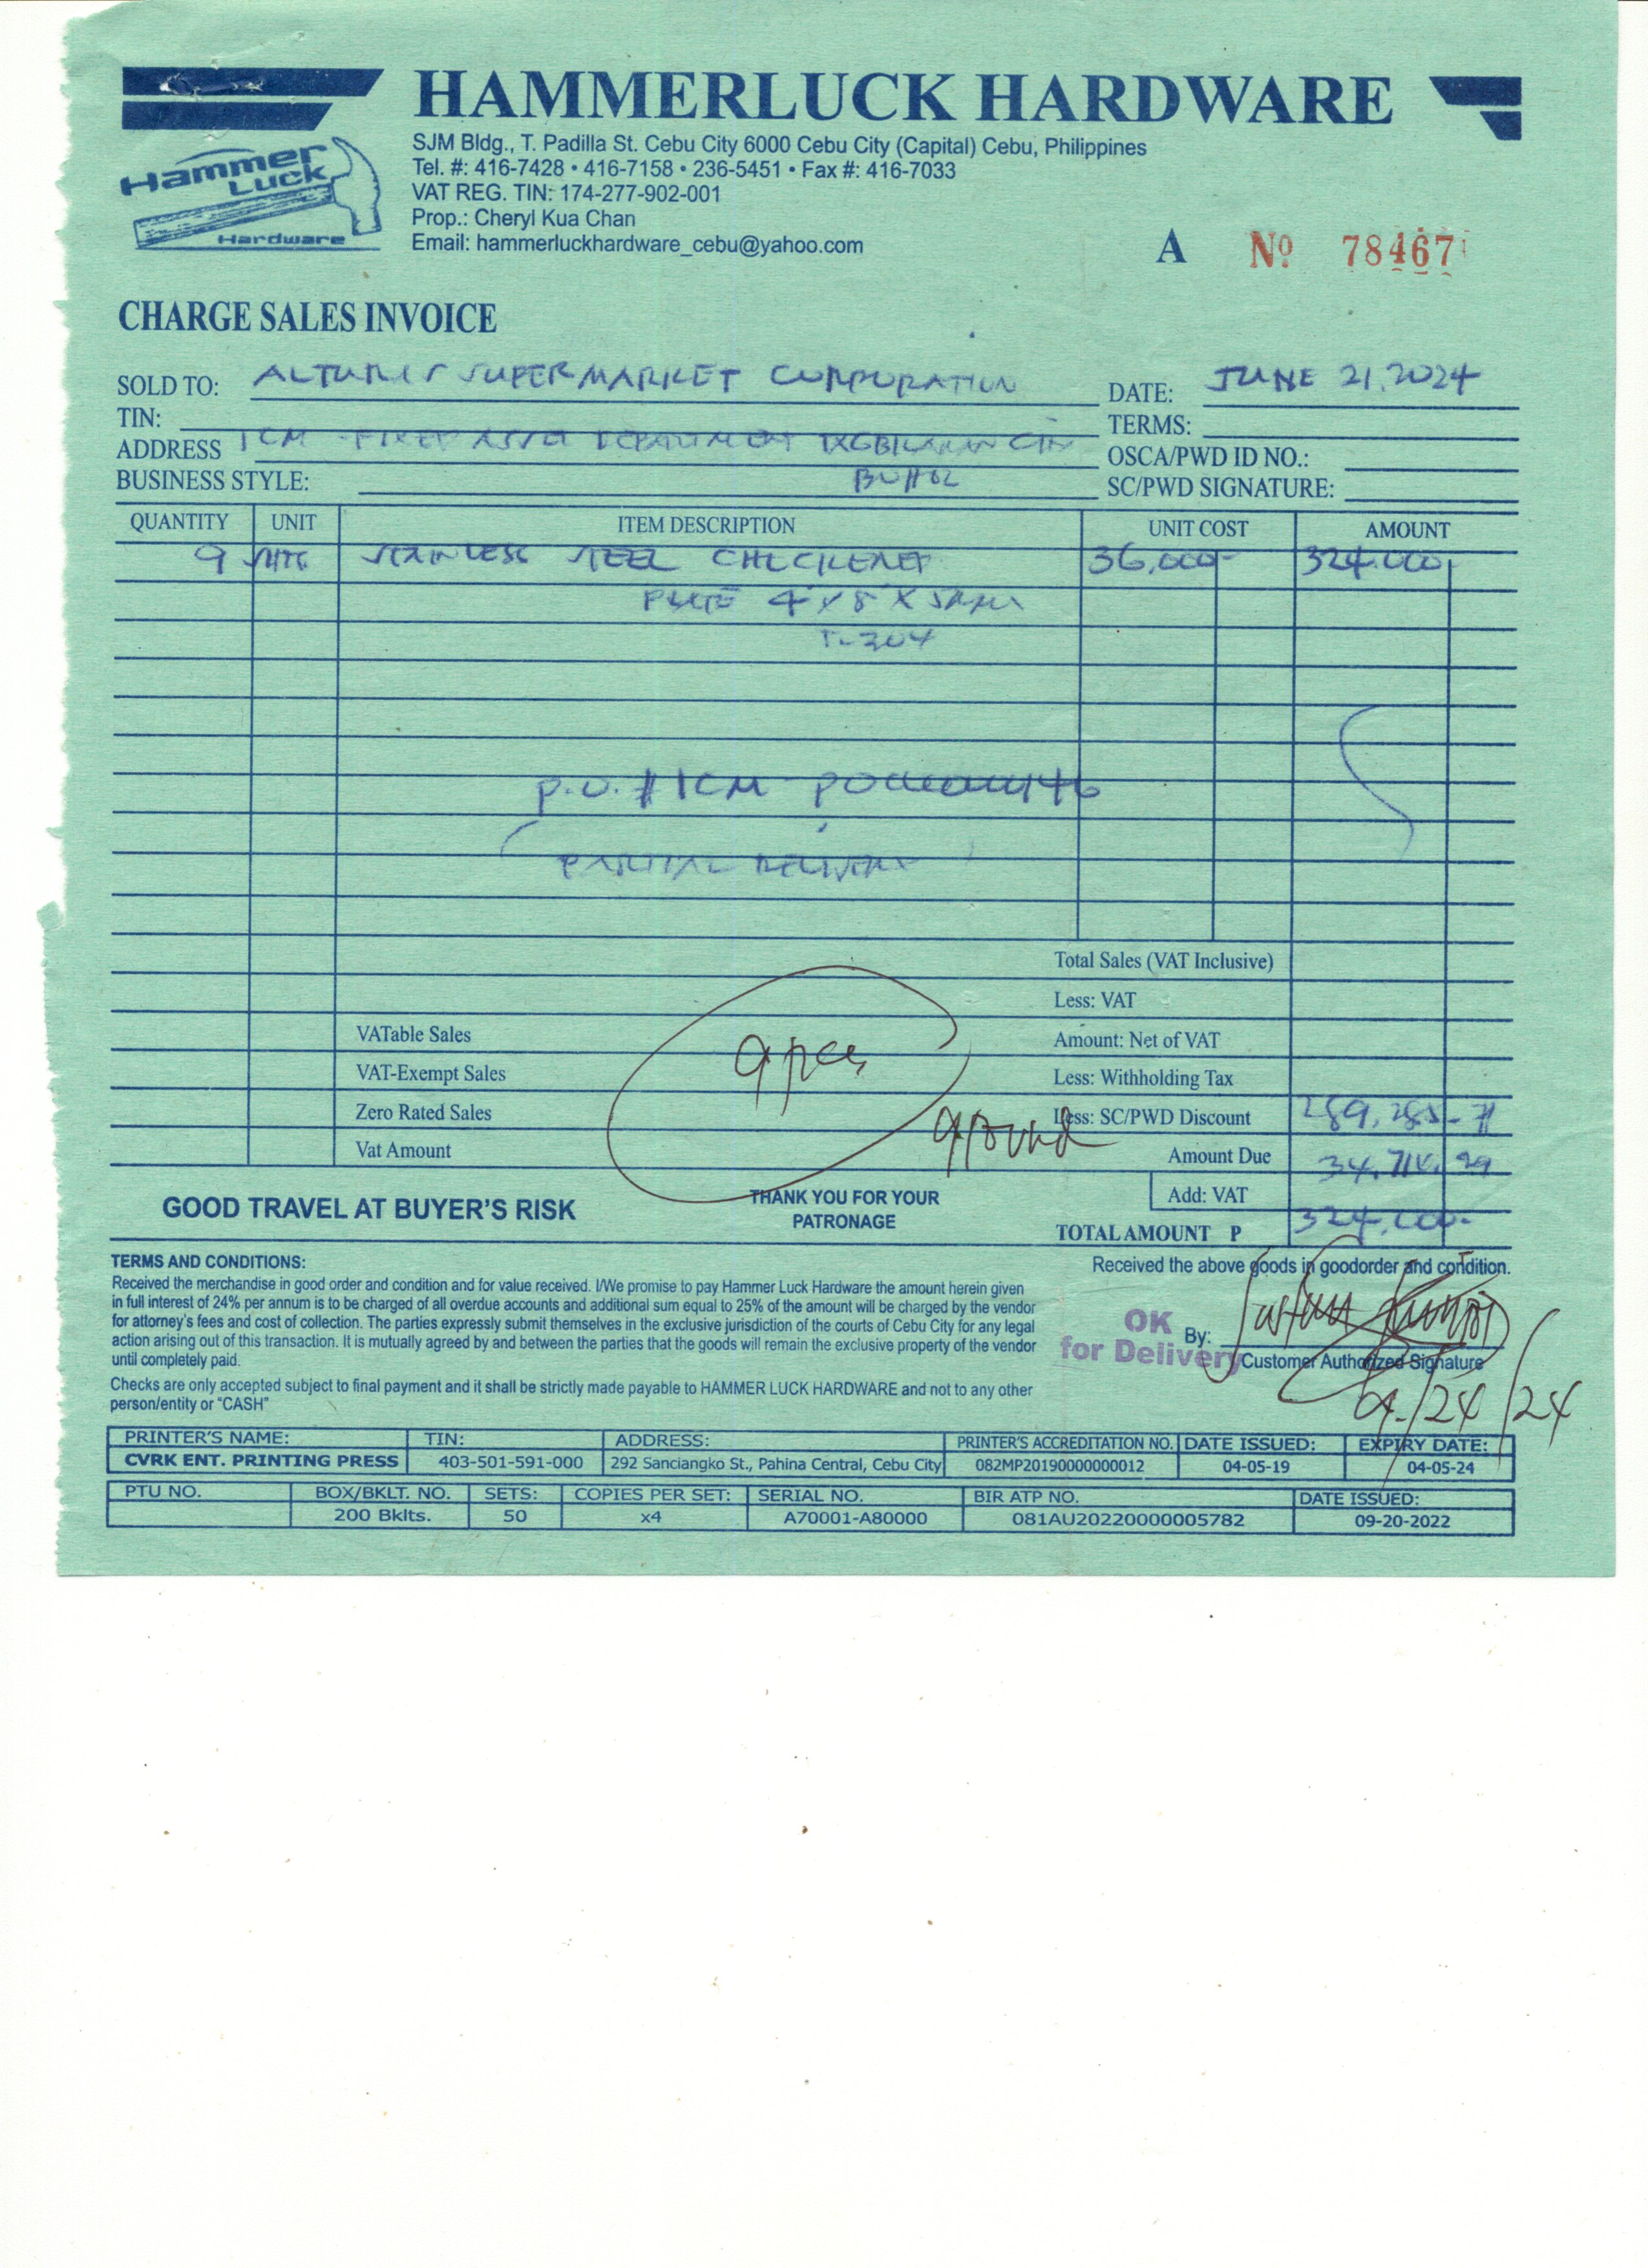 HAMMERLUCK HARDWARE
Hammer
Luck
Hardware
SJM Bldg., T. Padilla St. Cebu City 6000 Cebu City (Capital) Cebu, Philippines
Tel. #: 416-7428 • 416-7158 • 236-5451 • Fax #: 416-7033
VAT REG. TIN: 174-277-902-001
Prop.: Cheryl Kua Chan
Email: hammerluckhardware_cebu@yahoo.com
A Nº 78467
CHARGE SALES INVOICE
SOLD TO: ALTURAS SUPERMARKET CORPORATION DATE: JUNE 21, 2024
TIN: TERMS:
ADDRESS ICM - FIXED ASSET DEPARTMENT TAGBILARAN CITY OSCA/PWD ID NO.:
BUSINESS STYLE: BOHOL SC/PWD SIGNATURE:
QUANTITY UNIT ITEM DESCRIPTION UNIT COST AMOUNT
9 STAINLESS STEEL CHECKERED 36,000- 324,000
PLATE 4 x 8 x 5MM
T-304
P.O. # ICM -
PARTIAL DELIVERY
Total Sales (VAT Inclusive)
Less: VAT
VATable Sales Amount: Net of VAT
VAT-Exempt Sales 9 pcs Less: Withholding Tax
Zero Rated Sales Less: SC/PWD Discount 289,285-71
Vat Amount Amount Due 34,714.29
Add: VAT
GOOD TRAVEL AT BUYER'S RISK THANK YOU FOR YOUR
PATRONAGE
TOTAL AMOUNT P 324,000-
TERMS AND CONDITIONS:
Received the merchandise in good order and condition and for value received. I/We promise to pay Hammer Luck Hardware the amount herein given
in full interest of 24% per annum is to be charged of all overdue accounts and additional sum equal to 25% of the amount will be charged by the vendor
for attorney's fees and cost of collection. The parties expressly submit themselves in the exclusive jurisdiction of the courts of Cebu City for any legal
action arising out of this transaction. It is mutually agreed by and between the parties that the goods will remain the exclusive property of the vendor
until completely paid.
Checks are only accepted subject to final payment and it shall be strictly made payable to HAMMER LUCK HARDWARE and not to any other
person/entity or “CASH”
Received the above goods in goodorder and condition.
OK
for Delivery
By:
Customer Authorized Signature
/24/24
PRINTER'S NAME: TIN: ADDRESS: PRINTER'S ACCREDITATION NO. DATE ISSUED: EXPIRY DATE:
CVRK ENT. PRINTING PRESS 403-501-591-000 292 Sanciangko St., Pahina Central, Cebu City 082MP20190000000012 04-05-19 04-05-24
PTU NO. BOX/BKLT. NO. SETS: COPIES PER SET: SERIAL NO. BIR ATP NO. DATE ISSUED:
200 Bklts. 50 x4 A70001-A80000 081AU20220000005782 09-20-2022